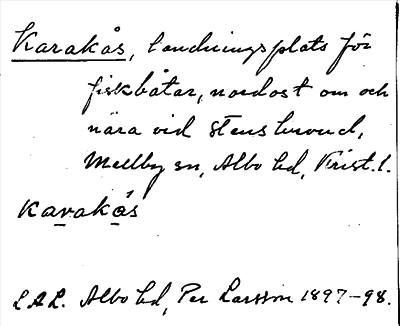 Karakås, landningsplats för
fiskbåtar, nordost om och
nära vid Stenshuvud,
Mellby sn, Albo hd, Krist. l.
kavakås
L.A.L. Albo hd, Per Larsson 1897-98.